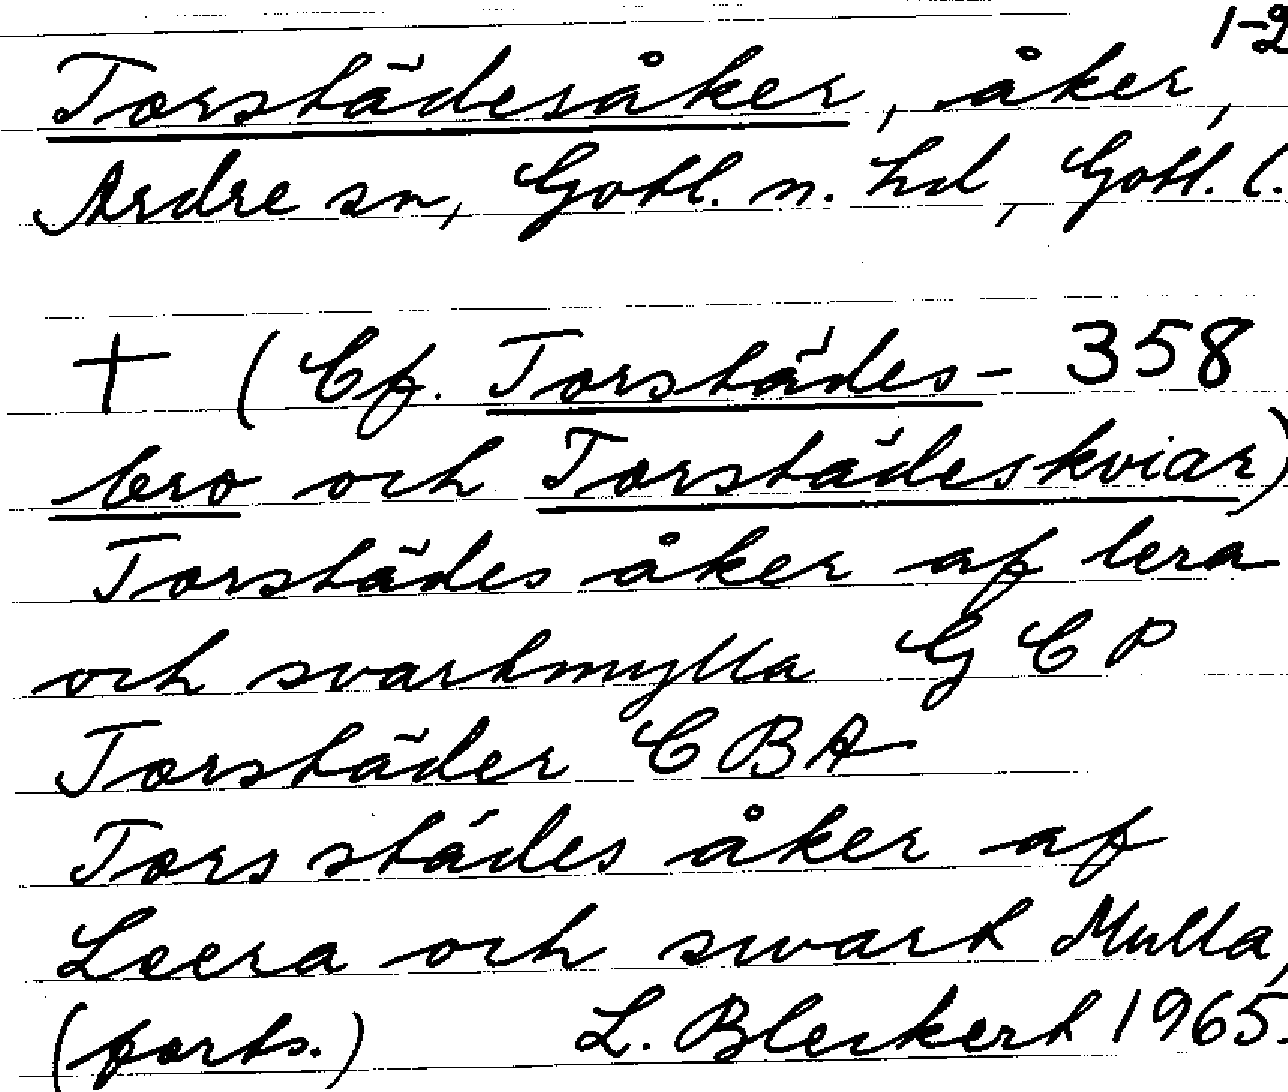 1-2
Torstädesåker, åker,
Ardre sn, Gotl. n. hd, Gotl. l.
† (Cf. Torstädes- 358
bro och Torstädeskviar)
Torstädes åker af lera
och svartmylla GCP
Torstäder CBA
Tors städes åker af
Leera och swart Mulla,
(forts.) L. Bleckert 1965.